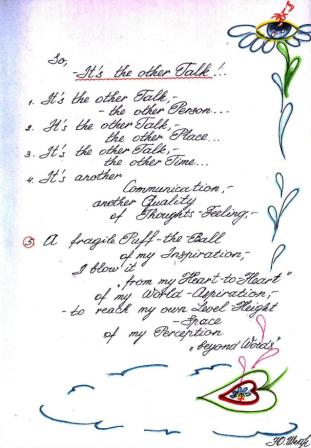 So,
- It's the other Talk!..
1. It's the other Talk,-
- the other Person...
2. It's the other Talk,-
the other Place...
3. It's the other Talk;-
the other Time...
4. It's another
Communication,-
another Quality
of Thoughts-Feeling;-
5 A fragile Puff-the-Ball
of my Inspiration,
I blow it
„from my Heart-to-Heart"
of my World-Aspiration,-
- to reach my own Level Height
- Space
of my Perception
„beyond Words"